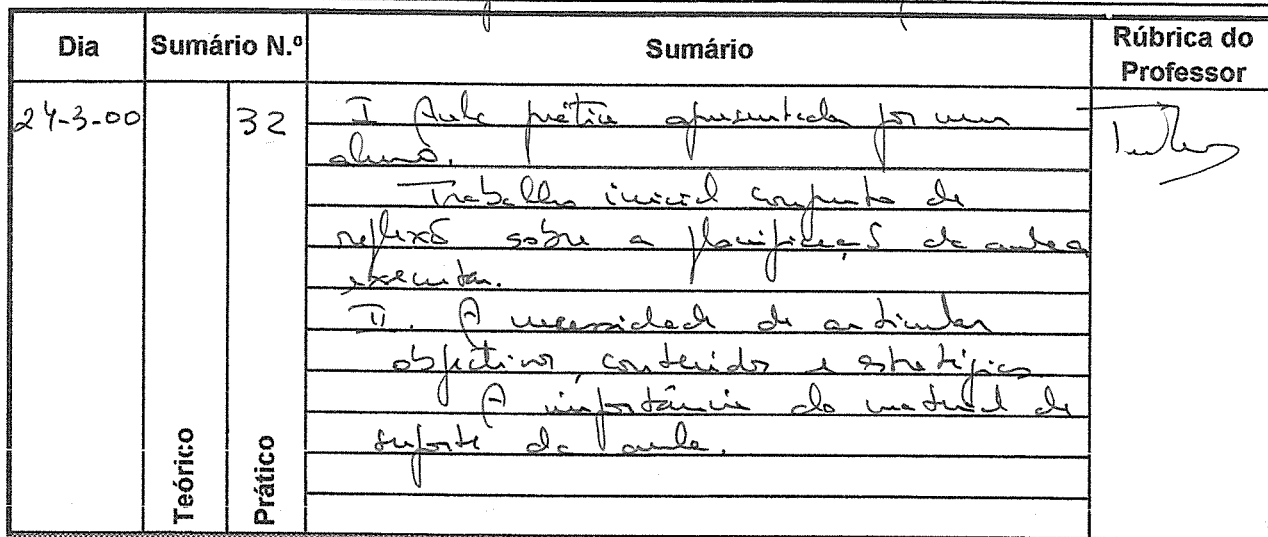 Dia Sumário N.º Sumário Rúbrica do Professor
24-3-00 32 I Aula prática apresentada por um
aluno.
Trabalho inicial conjunto de
reflexão sobre a planificação da aula a
executar.
II. A necessidade de articular
objectivos, conteúdos e estratégias
A importância do material de
suporte da aula.
Teórico Prático